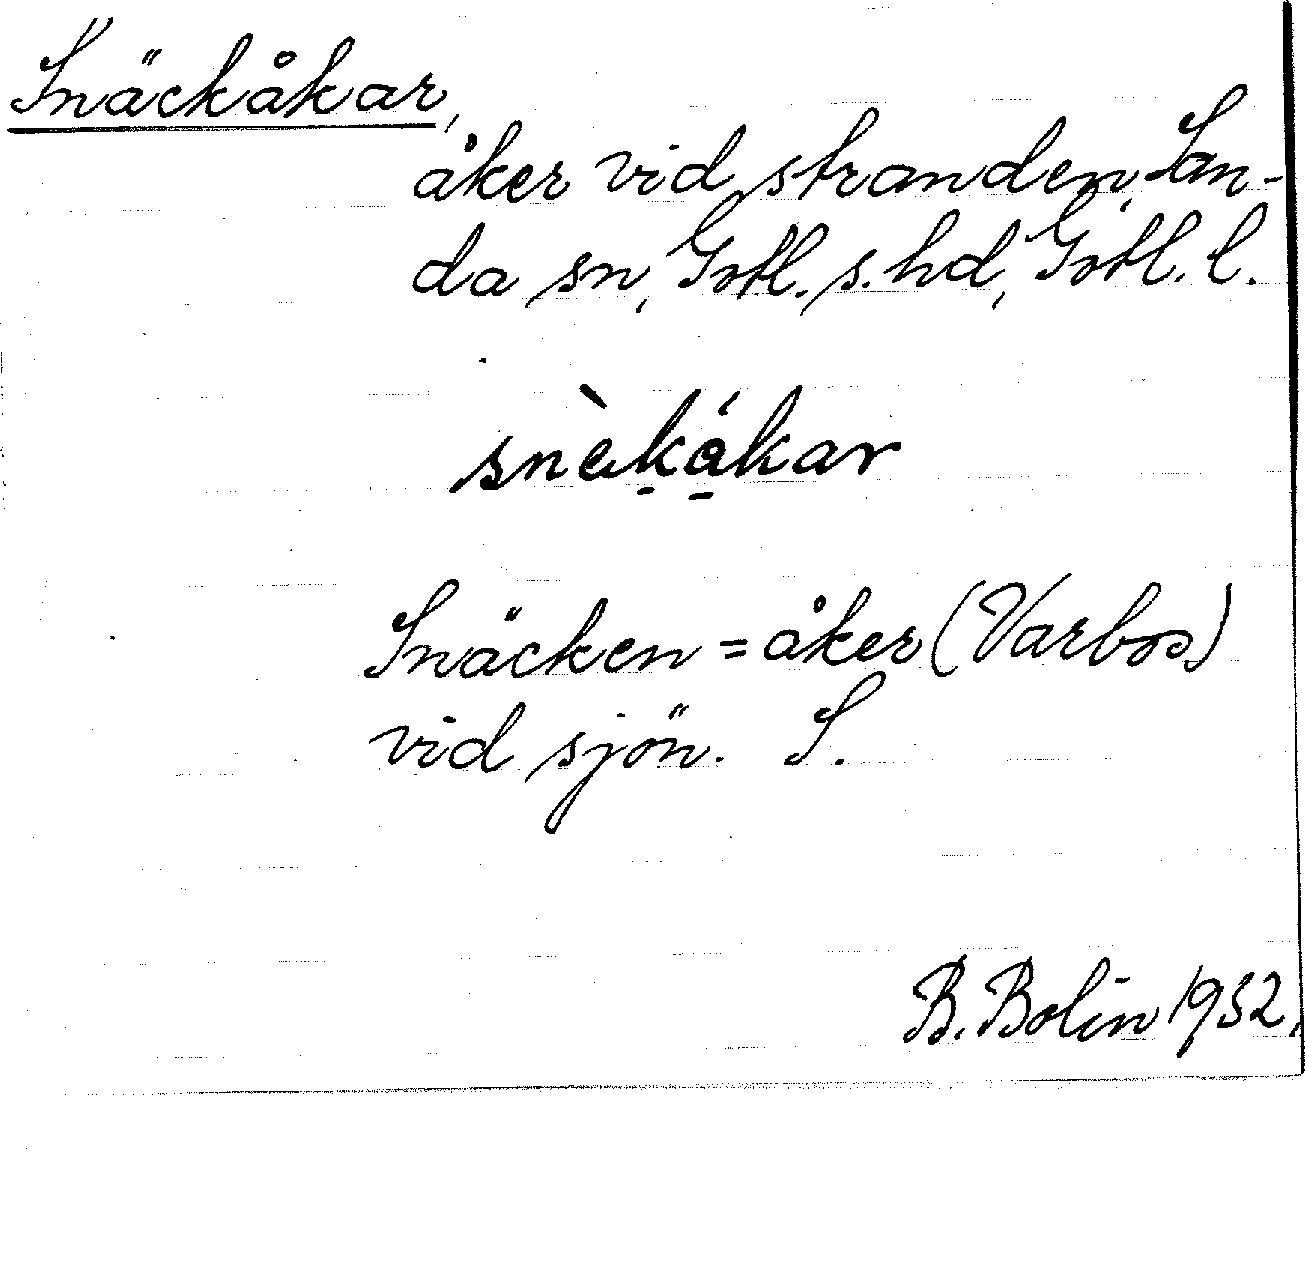 Snäckåkar,
åker vid stranden, San-
da sn, Gotl. s. hd, Gotl. l.
snèkåkar
Snäcken = åker (Varbos)
vid sjön. S.
B. Bolin 1932.